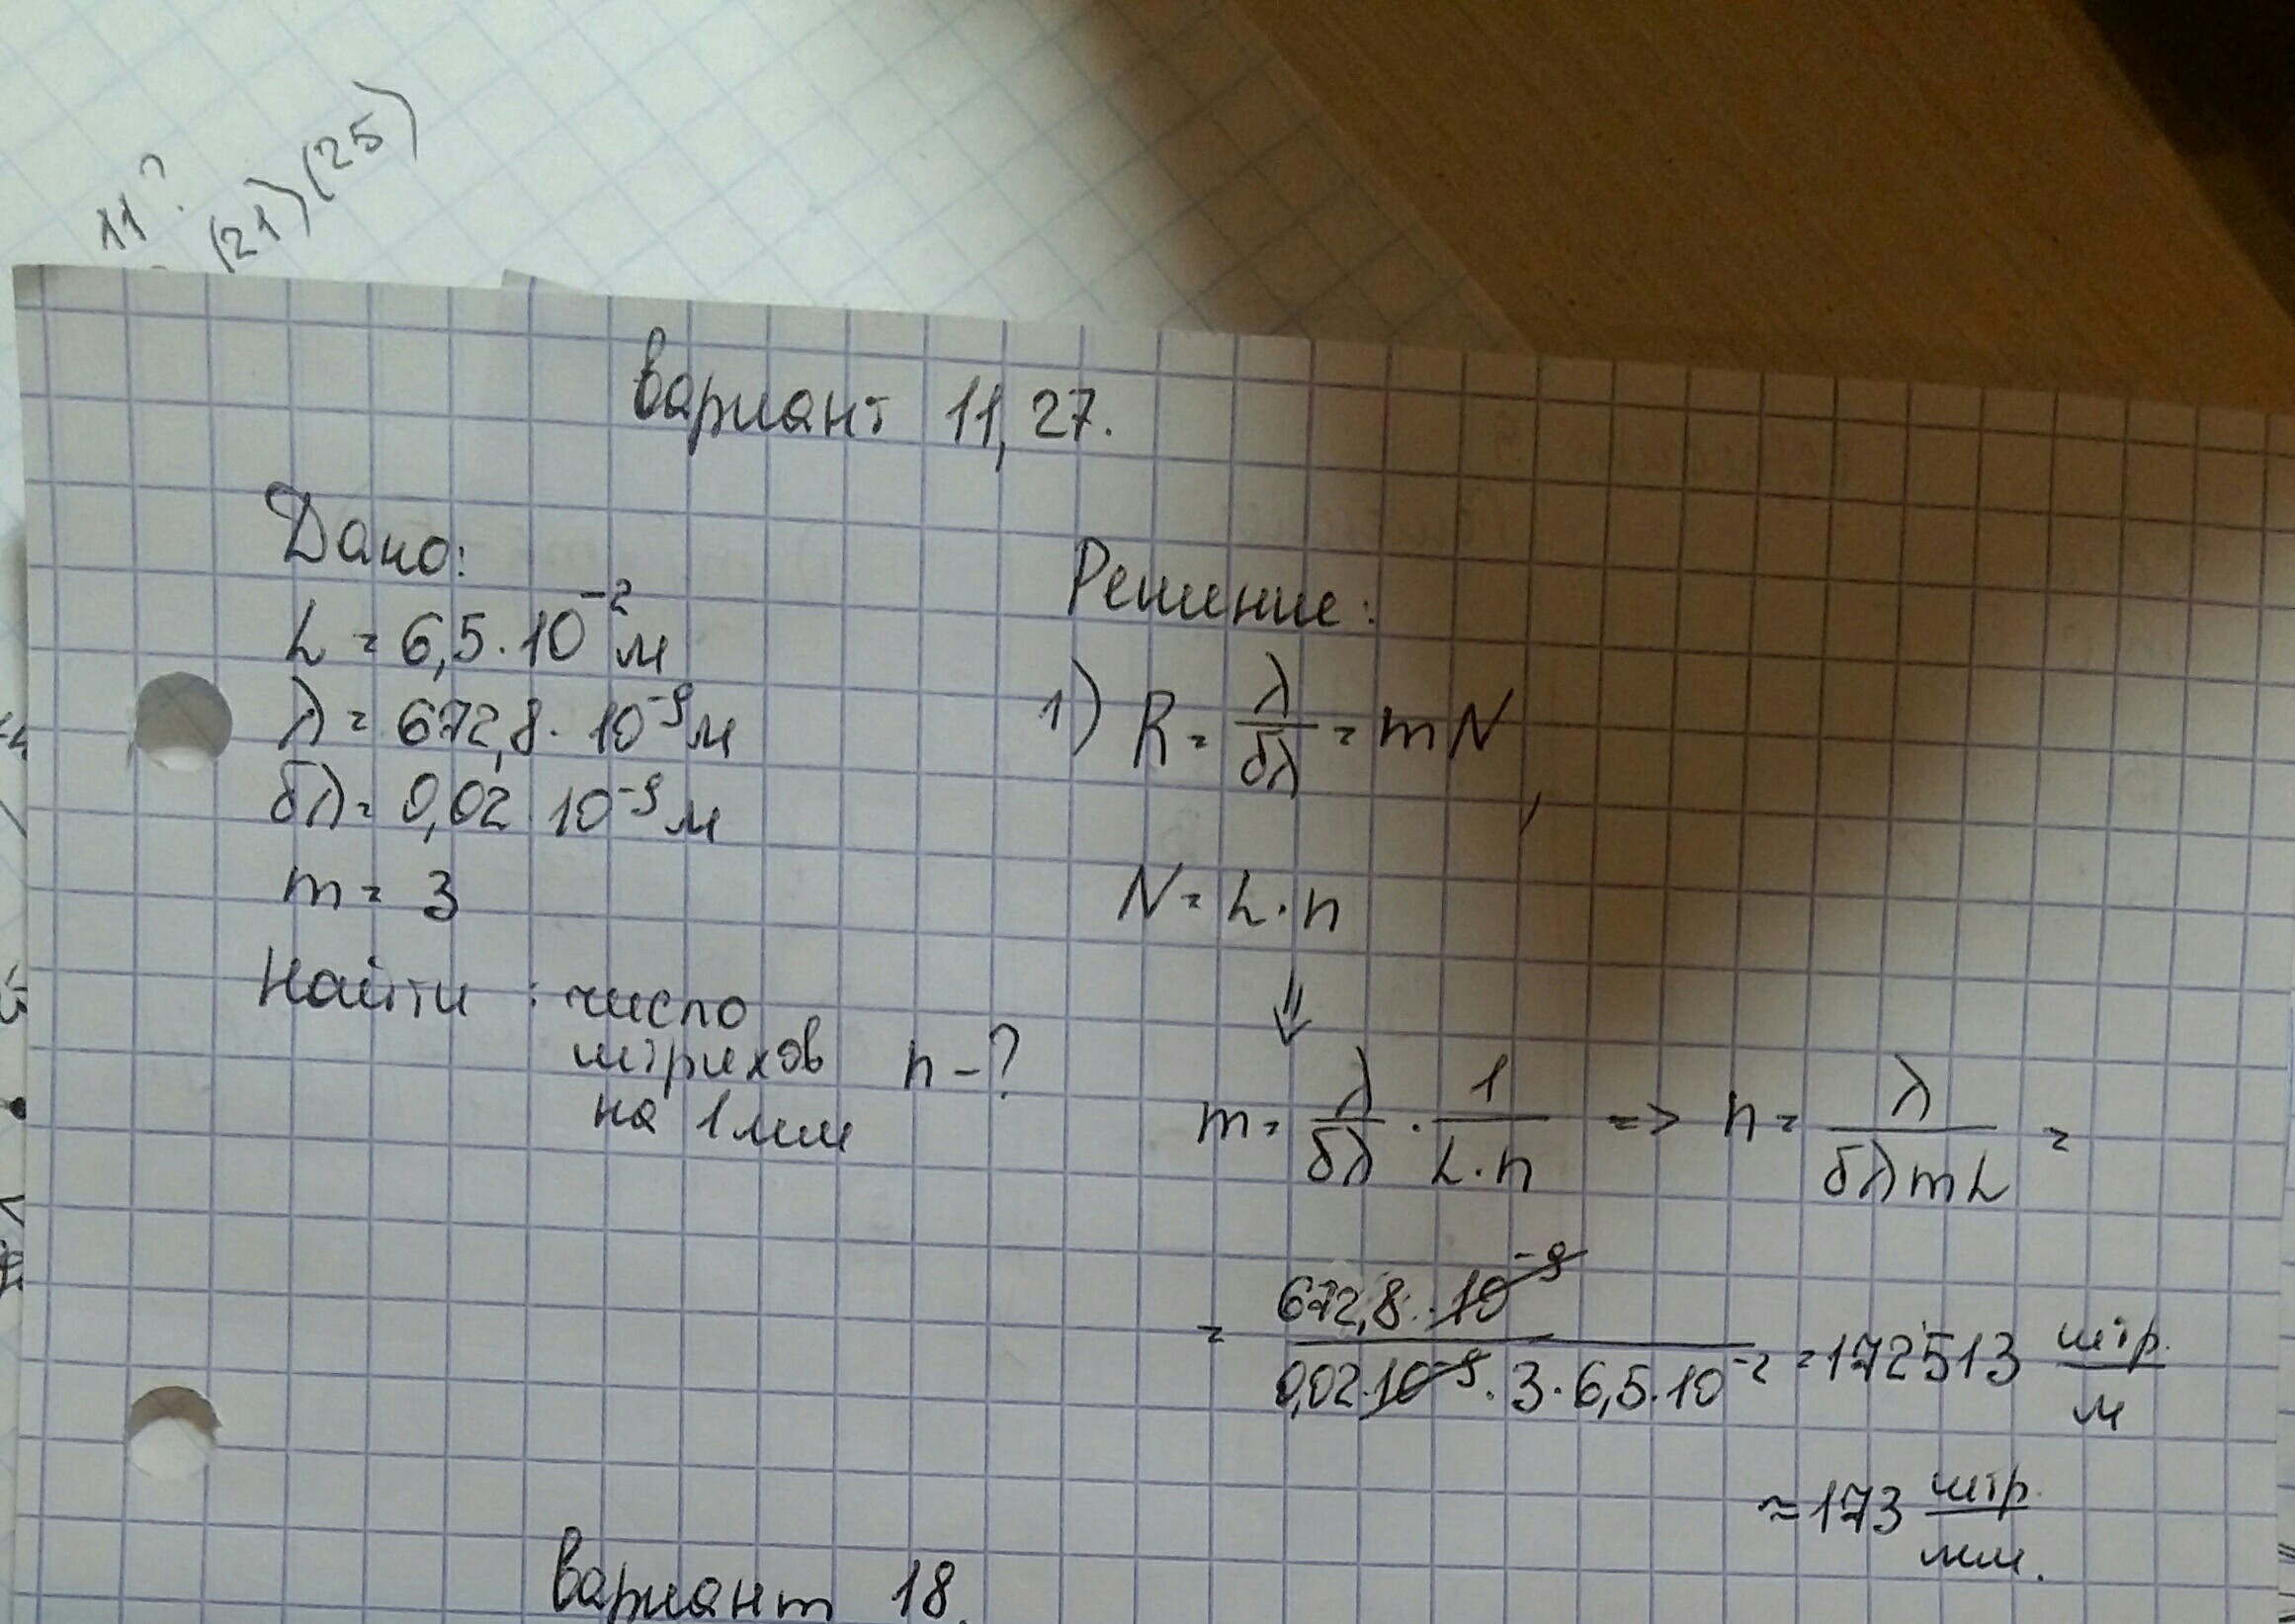 11?
(21)(25)
Вариант 11, 27.
Дано:
L = 6,5 · 10⁻² м
λ = 672,8 · 10⁻⁹ м
δλ = 0,02 · 10⁻⁹ м
m = 3
Найти : число
штрихов n - ?
на 1 мм
Решение:
1) R = λ/δλ = mN,
N = L · n
⇓
m = λ/δλ · 1/(L · n) => n = λ/(δλmL) =
= (672,8 · 10⁻⁹)/(0,02 · 10⁻⁹ · 3 · 6,5 · 10⁻²) = 172513 штр./м
≈ 173 штр./мм.
Вариант 18.